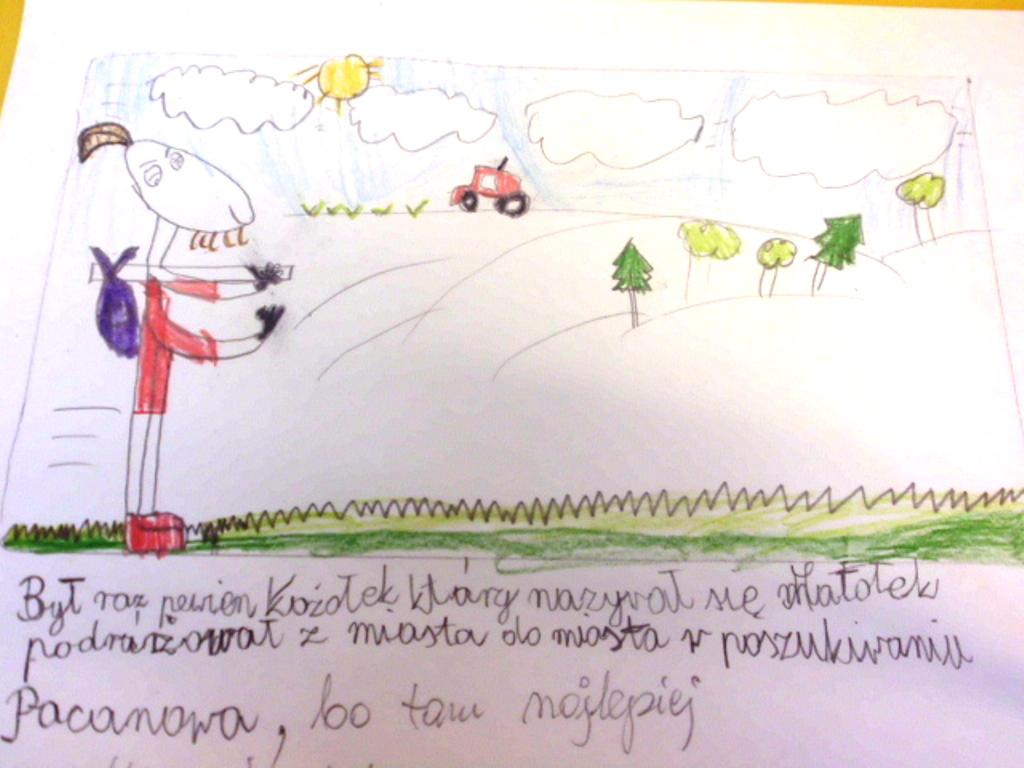 Był raz pewien Koziołek który nazywał się Matołek
podrużował z miasta do miasta w poszukiwaniu
Pacanowa, bo tam najlepiej